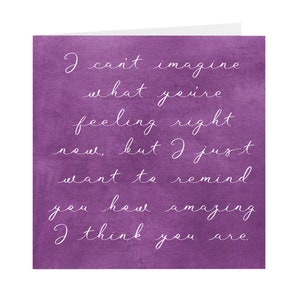 I can't imagine
what you're
feeling right
now, but I just
want to remind
you how amazing
I think you are.